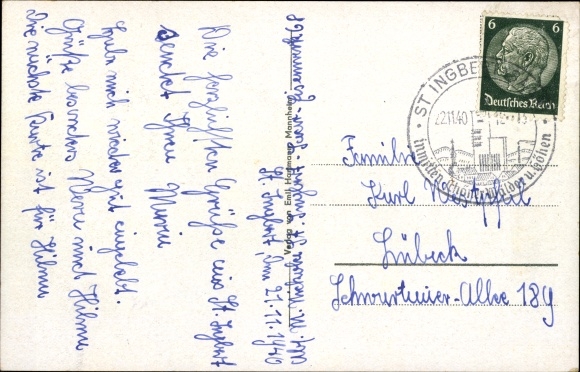 Abs. M. Nikolai St. Ingbert-Saar
St. Ingbert, den 21.11.1940
Die herzlichsten Grüße aus St. Ingbert
sendet Ihnen Maria
Habe mich wieder gut eingelebt.
Grüße besonders Vera und Hilma
Die nächste Karte ist für Hilma
Verlag von Emil Hartmann, Mannheim
6 6
Deutsches Reich
ST. INGBERT
22.11.40
Inmitten schöner Wälder u. Höhen
Familie
Karl Westphal
Lübeck
Schwartauer-Allee 189